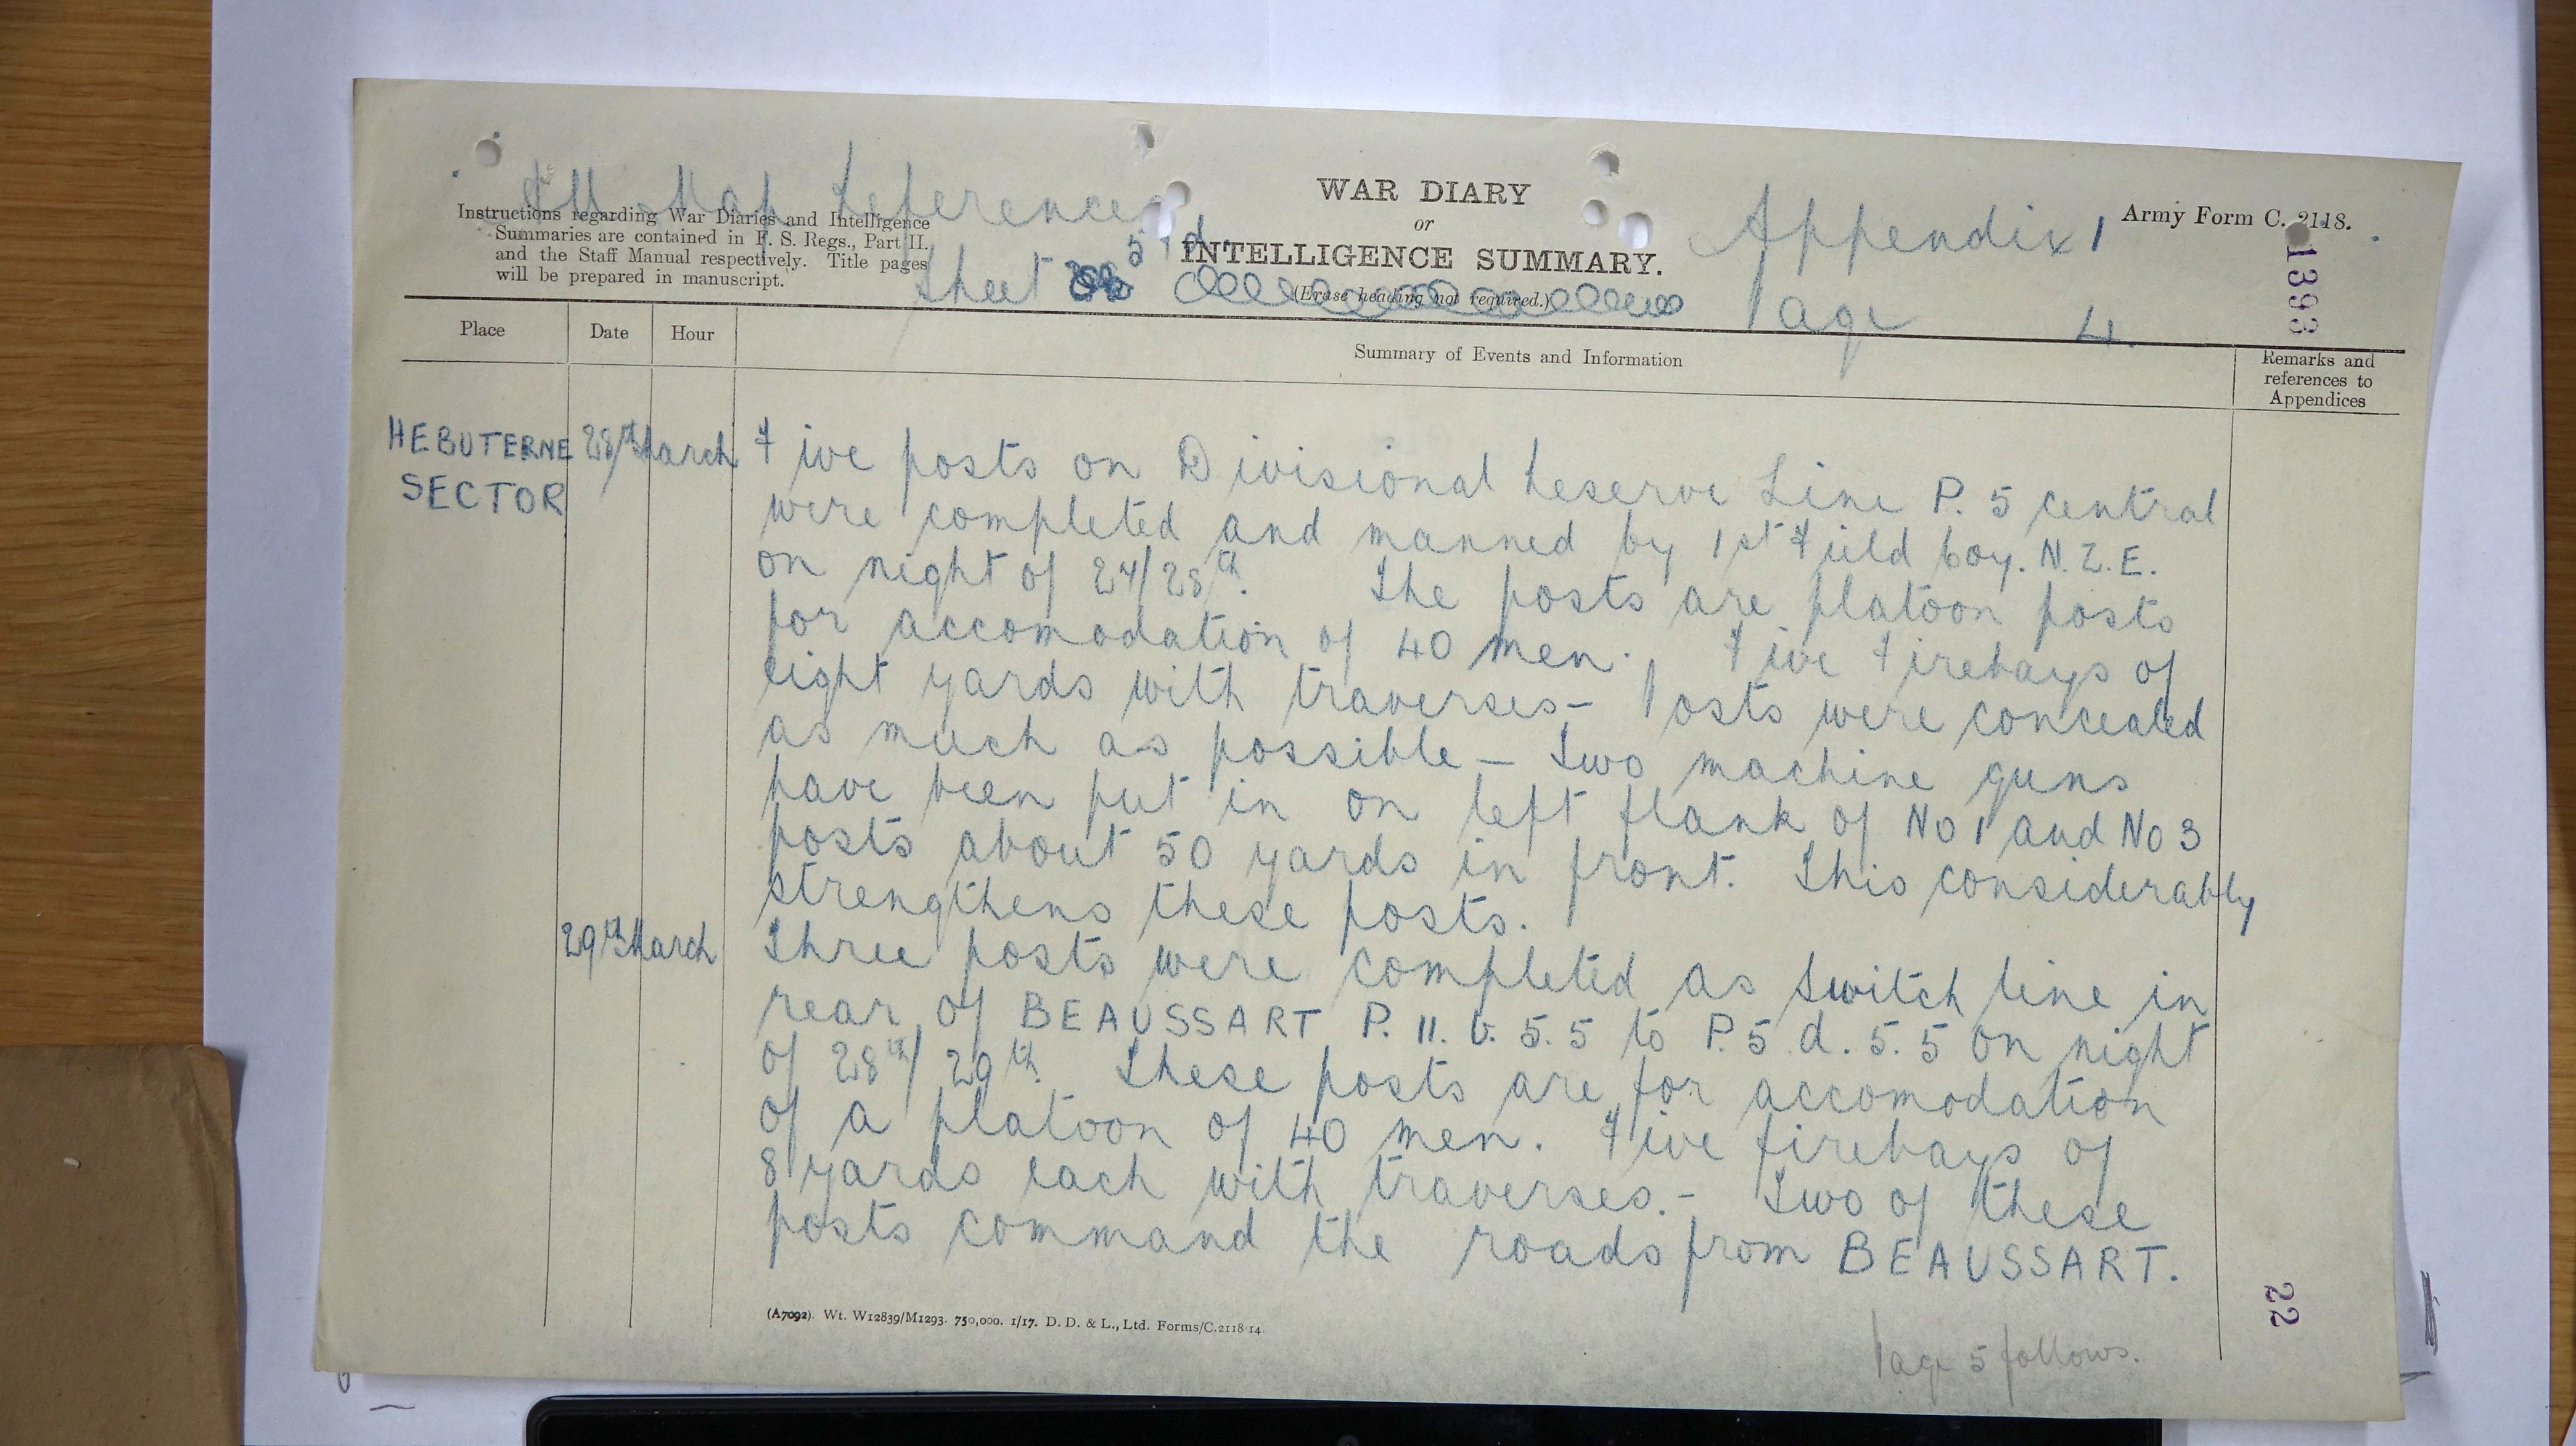 All Map References
Sheet 57d.
WAR DIARY
or
INTELLIGENCE SUMMARY.
(Erase heading not required.)
Instructions regarding War Diaries and Intelligence
Summaries are contained in F. S. Regs., Part II.
and the Staff Manual respectively. Title pages
will be prepared in manuscript.
Appendix 1
Page 4.
Army Form C. 2118.
1393
Place Date Hour Summary of Events and Information Remarks and
references to
Appendices
HEBUTERNE 28th March Five posts on Divisional Reserve Line P. 5 central
SECTOR were completed and manned by 1st Field Coy. N.Z.E.
on night of 27/28th. The posts are platoon posts
for accomodation of 40 men. Five Firebays of
eight yards with traverses - Posts were concealed
as much as possible - Two machine guns
have been put in on left flank of No 1 and No 3
posts about 50 yards in front. This considerably
strengthens these posts.
29th March Three posts were completed as switch line in
rear of BEAUSSART P. 11. b. 5.5 to P.5.d.5.5 on night
of 28th/29th. These posts are for accomodation
of a platoon of 40 men. Five firebays of
8 yards each with traverses. - Two of these
posts command the roads from BEAUSSART.
(A7092). Wt. W12839/M1293. 750,000. 1/17. D. D. & L., Ltd. Forms/C.2118/14.
22
Page 5 follows.